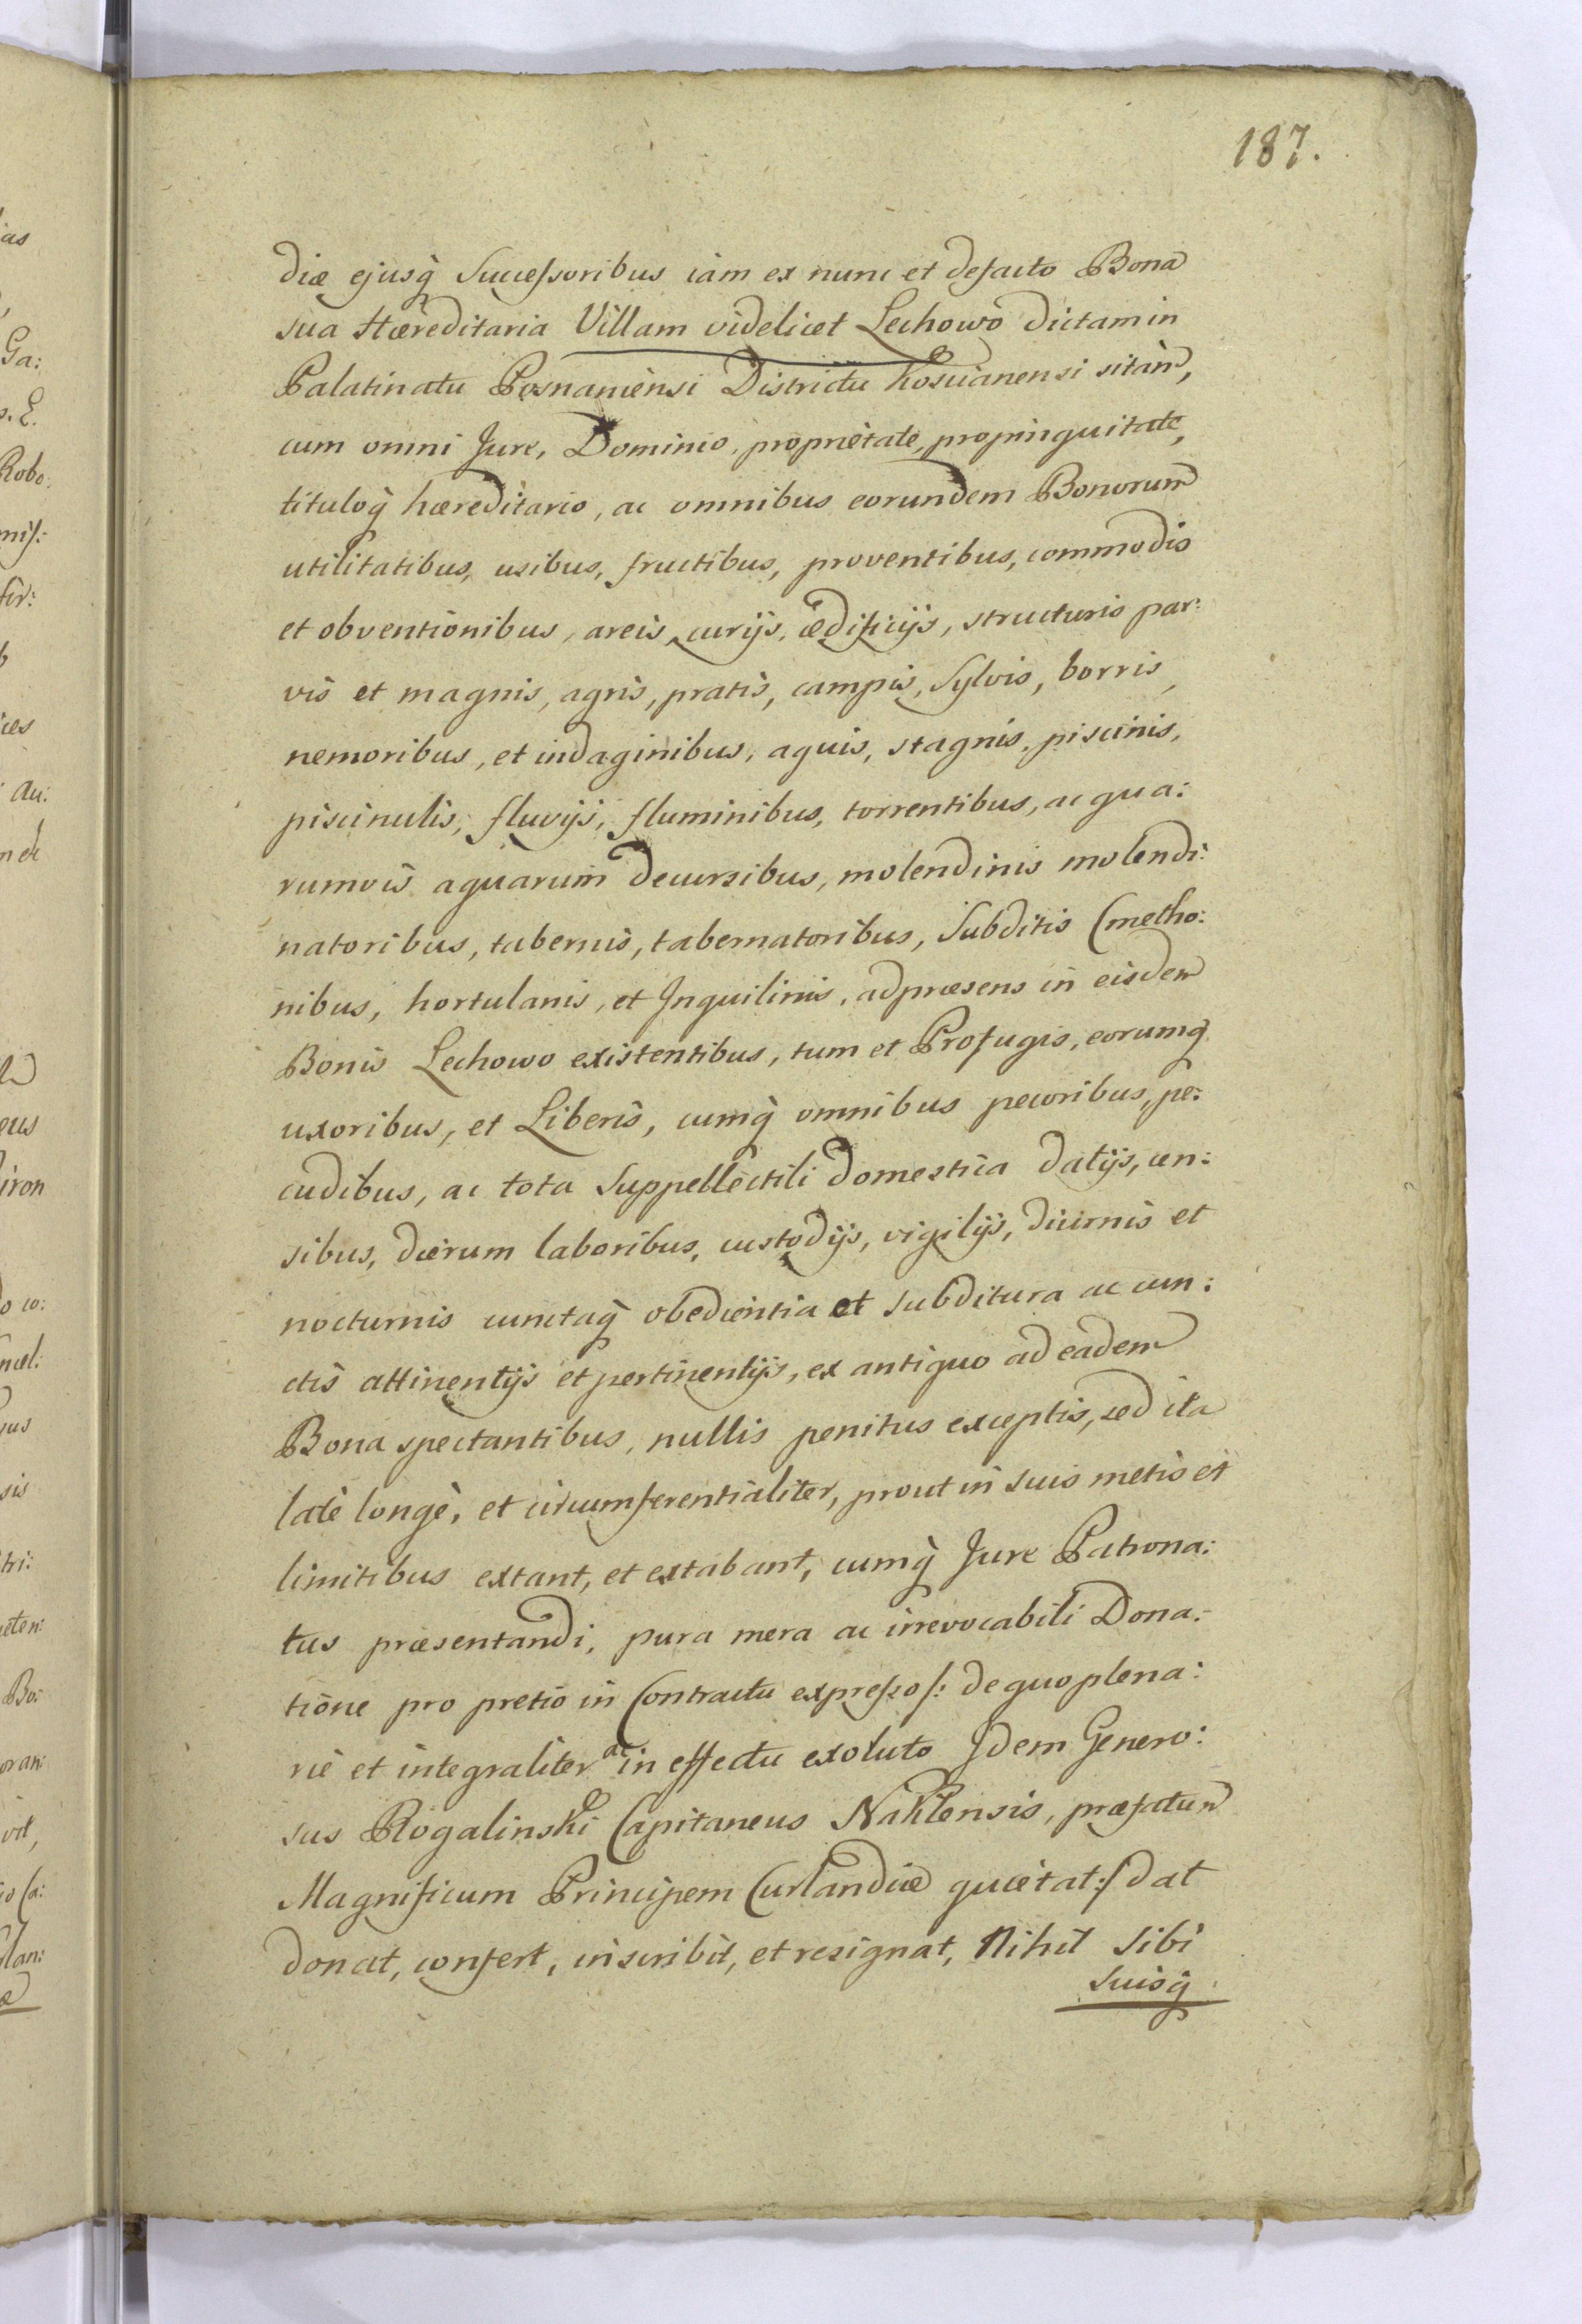 187.
diæ ejusq̀ Successoribus iàm ex nunc et defacto Bona
sua Hæreditaria Villam videlicet Lechowo dictam in
Palatinatu Posnaniènsi Districtu Koscianensi sitàm,
cum omni Jure, Dominio, proprietate, propinquitate,
tituloq̀ hæreditario, ac omnibus eorundem Bonorum
utilitatibus, usibus, fructibus, proventibus, commodis
et obventionibus, areis, curijs, ædificijs, structuris par:
vis et magnis, agris, pratis, campis, Sylvis, borris,
nemoribus, et indaginibus, aquis, stagnis, piscinis,
piscinulis, fluvijs, fluminibus, torrentibus, ac qua:
rumvis aquarum decursibus, molendinis molendi:
natoribus, tabernis, tabernatoribus, Subditis Cmetho:
nibus, hortulanis, et Inquilinis, adpræsens in eisdem
Bonis Lechowo existentibus, tum et Profugis, eorumq̀
uxoribus, et Liberis, cumq̀ omnibus pecoribus, pe:
cudibus, ac tota Suppellectili domestica datijs, cen:
sibus, dierum laboribus, custodijs, vigilijs, diurnis et
nocturnis cunctaq̀ obedientia et subditura ac cun:
ctis attinentijs et pertinentijs, ex antiquo ad eadem
Bona spectantibus, nullis penitus exceptis, sed ita
latè longè, et circumferentialiter, prout in suis metis et
limitibus extant, et extabant, cumq̀ Jure Patrona:
tus præsentandi, pura mera ac irrevocabili Dona:
tione pro pretio in Contractu expresso /: de quo plena:
riè et integraliter ac in effectu exoluto Idem Genero:
sus Rogalinski Capitaneus Naklensis, præfatum
Magnificum Principem Curlandiæ quietat :/ dat
donat, confert, inscribit, et resignat, Nihil sibi
suisq̀